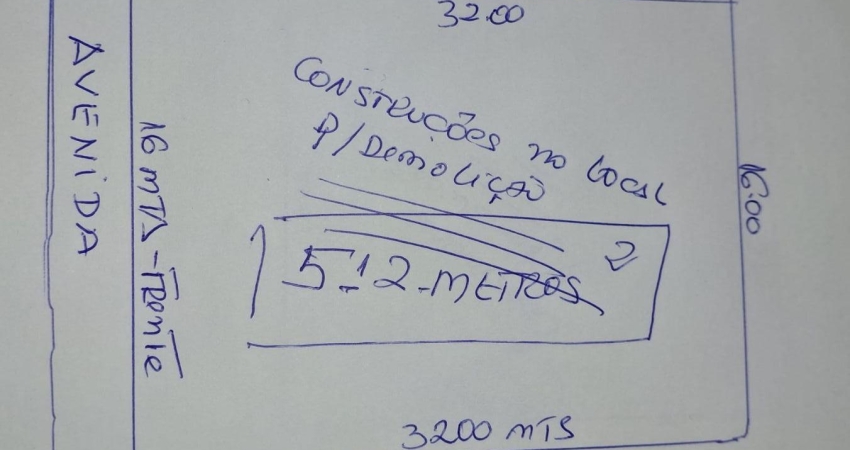 32.00
AVENIDA
16 MTS - Frente
CONSTRUÇÕES no Local
P/ Demolição
16.00
512 - METROS 2
3200 MTS